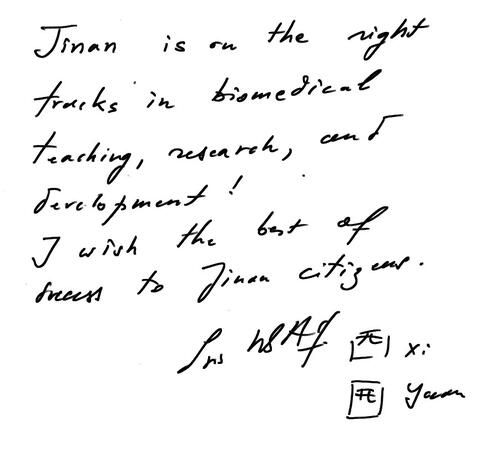 Jinan is on the right
tracks in biomedical
teaching, research, and
development!
I wish the best of
success to Jinan citizens.
Xi